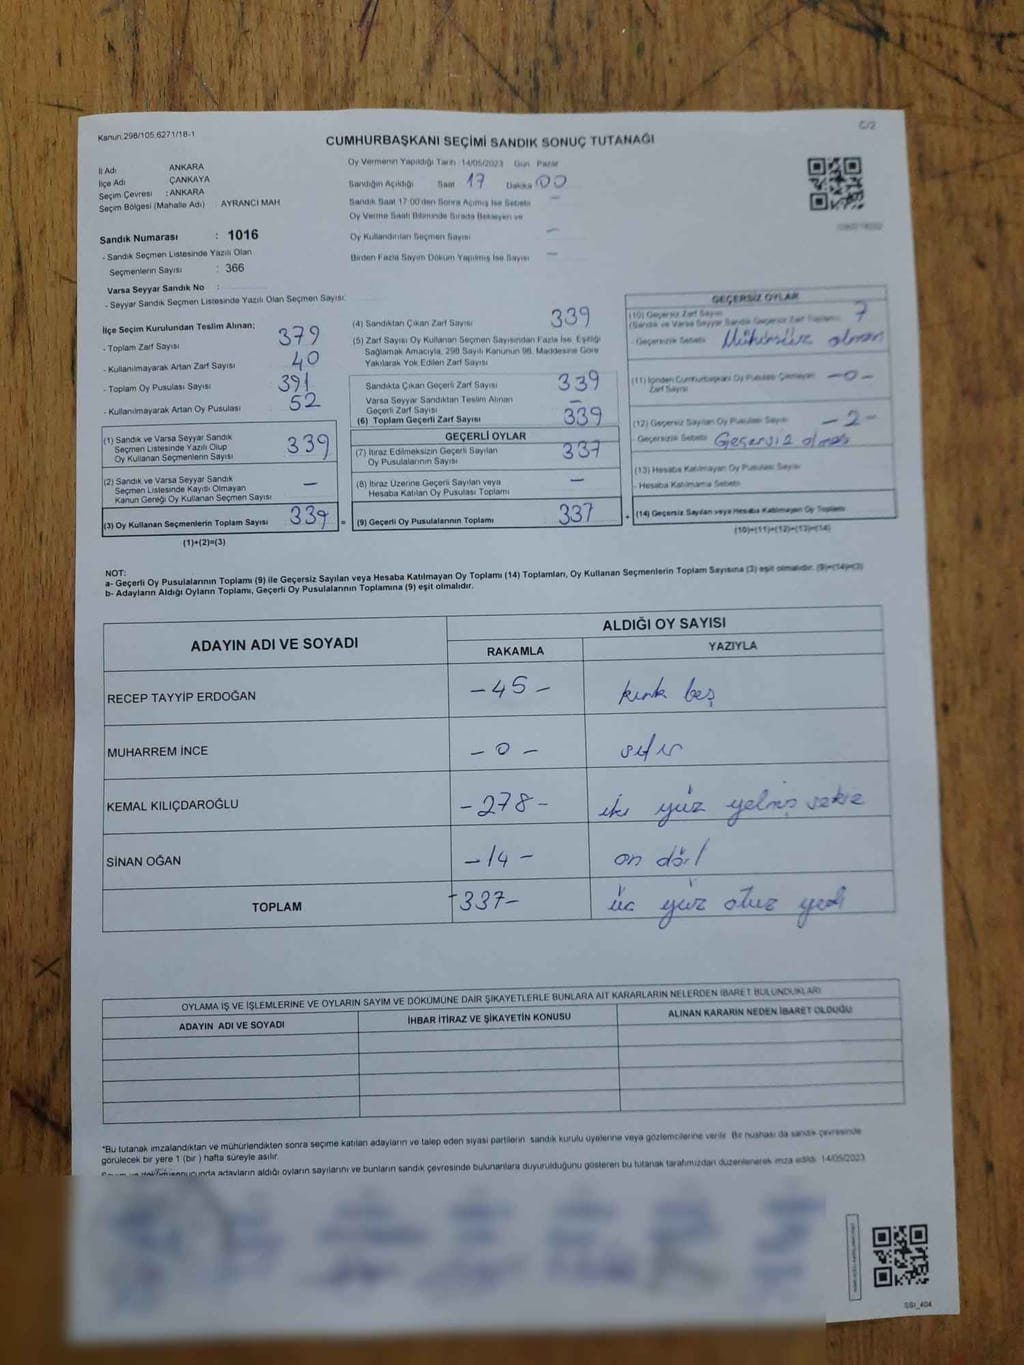 Kanun.298/105.6271/18-1
C/2
CUMHURBAŞKANI SEÇİMİ SANDIK SONUÇ TUTANAĞI
İl Adı ANKARA
İlçe Adı ÇANKAYA
Seçim Çevresi : ANKARA
Seçim Bölgesi (Mahalle Adı) : AYRANCI MAH
Sandık Numarası : 1016
- Sandık Seçmen Listesinde Yazılı Olan
Seçmenlerin Sayısı : 366
Varsa Seyyar Sandık No :
- Seyyar Sandık Seçmen Listesinde Yazılı Olan Seçmen Sayısı:
Oy Vermenin Yapıldığı Tarih :14/05/2023 Gün Pazar
Sandığın Açıldığı Saat 17 Dakika 00
Sandık Saat 17:00'den Sonra Açılmış İse Sebebi -
Oy Verme Saati Bitiminde Sırada Bekleyen ve
Oy Kullandırılan Seçmen Sayısı -
Birden Fazla Sayım Döküm Yapılmış İse Sayısı -
İlçe Seçim Kurulundan Teslim Alınan;
- Toplam Zarf Sayısı 379
- Kullanılmayarak Artan Zarf Sayısı 40
- Toplam Oy Pusulası Sayısı 391
- Kullanılmayarak Artan Oy Pusulası 52
(1) Sandık ve Varsa Seyyar Sandık
Seçmen Listesinde Yazılı Olup
Oy Kullanan Seçmenlerin Sayısı 339
(2) Sandık ve Varsa Seyyar Sandık
Seçmen Listesinde Kayıtlı Olmayan
Kanun Gereği Oy Kullanan Seçmen Sayısı -
(3) Oy Kullanan Seçmenlerin Toplam Sayısı 339 =
(1)+(2)=(3)
(4) Sandıktan Çıkan Zarf Sayısı 339
(5) Zarf Sayısı Oy Kullanan Seçmen Sayısından Fazla İse, Eşitliği
Sağlamak Amacıyla, 298 Sayılı Kanunun 98. Maddesine Göre
Yakılarak Yok Edilen Zarf Sayısı
Sandıkta Çıkan Geçerli Zarf Sayısı 339
Varsa Seyyar Sandıktan Teslim Alınan
Geçerli Zarf Sayısı -
(6) Toplam Geçerli Zarf Sayısı 339
GEÇERLİ OYLAR
(7) İtiraz Edilmeksizin Geçerli Sayılan
Oy Pusulalarının Sayısı 337
(8) İtiraz Üzerine Geçerli Sayılan veya
Hesaba Katılan Oy Pusulası Toplamı -
(9) Geçerli Oy Pusulalarının Toplamı 337 +
GEÇERSİZ OYLAR
(10) Geçersiz Zarf Sayısı 7
(Sandık ve Varsa Seyyar Sandık Geçersiz Zarf Toplamı)
- Geçersizlik Sebebi Mühürsüz olması
(11) İçinden Cumhurbaşkanı Oy Pusulası Çıkmayan
Zarf Sayısı -0-
(12) Geçersiz Sayılan Oy Pusulası Sayısı -2-
- Geçersizlik Sebebi Geçersiz olması
(13) Hesaba Katılmayan Oy Pusulası Sayısı
- Hesaba Katılmama Sebebi
(14) Geçersiz Sayılan veya Hesaba Katılmayan Oy Toplamı
(10)+(11)+(12)+(13)=(14)
NOT:
a- Geçerli Oy Pusulalarının Toplamı (9) ile Geçersiz Sayılan veya Hesaba Katılmayan Oy Toplamı (14) Toplamları, Oy Kullanan Seçmenlerin Toplam Sayısına (3) eşit olmalıdır. (9)+(14)=(3)
b- Adayların Aldığı Oyların Toplamı, Geçerli Oy Pusulalarının Toplamına (9) eşit olmalıdır.
ADAYIN ADI VE SOYADI
ALDIĞI OY SAYISI
RAKAMLA YAZIYLA
RECEP TAYYİP ERDOĞAN -45- kırk beş
MUHARREM İNCE -0- sıfır
KEMAL KILIÇDAROĞLU -278- iki yüz yetmiş sekiz
SİNAN OĞAN -14- on dört
TOPLAM -337- üç yüz otuz yedi
OYLAMA İŞ VE İŞLEMLERİNE VE OYLARIN SAYIM VE DÖKÜMÜNE DAİR ŞİKAYETLERLE BUNLARA AİT KARARLARIN NELERDEN İBARET BULUNDUKLARI
ADAYIN ADI VE SOYADI İHBAR İTİRAZ VE ŞİKAYETİN KONUSU ALINAN KARARIN NEDEN İBARET OLDUĞU
*Bu tutanak imzalandıktan ve mühürlendikten sonra seçime katılan adayların ve talep eden siyasi partilerin sandık kurulu üyelerine veya gözlemcilerine verilir. Bir nüshası da sandık çevresinde
görülecek bir yere 1 (bir) hafta süreyle asılır.
sonucunda adayların aldığı oyların sayılarını ve bunların sandık çevresinde bulunanlara duyurulduğunu gösteren bu tutanak tarafımızdan düzenlenerek imza edildi. 14/05/2023
SSI_404